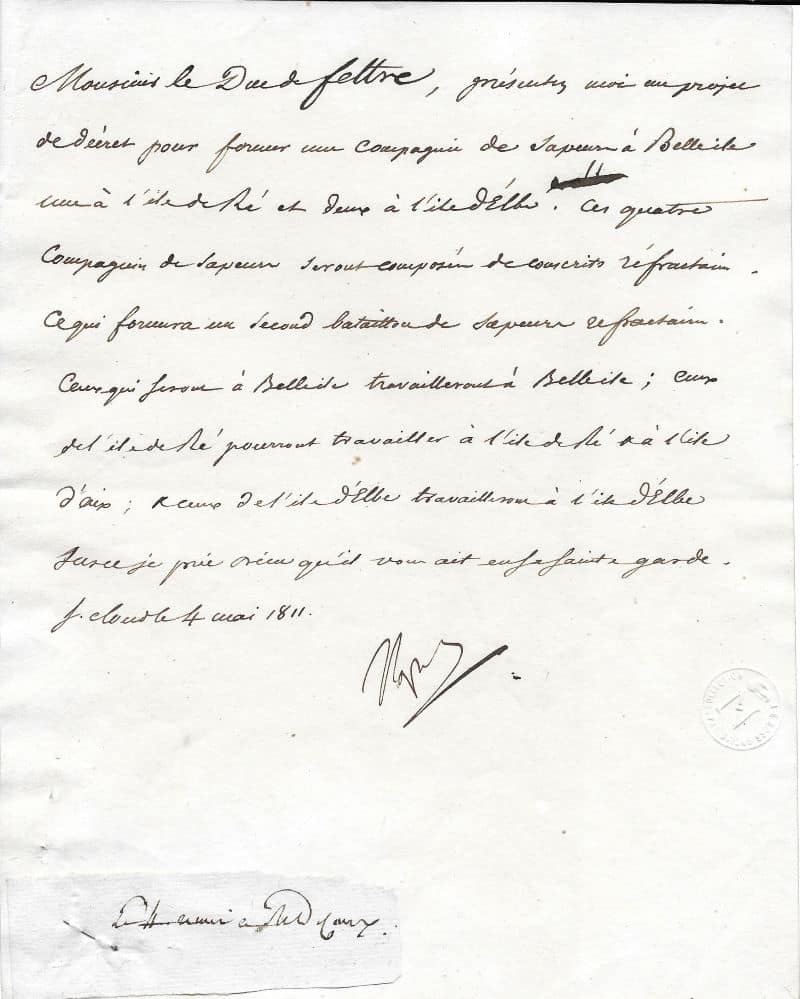 Monsieur le Duc de feltre, présentez moi un projet
de décret pour former une compagnie de Sapeurs à Belleile
une à l'ile de Ré et deux à l'ile d'Elbe. Ces quatre
Compagnies de Sapeurs seront composées de conscrits réfractaires.
Ce qui formera un second bataillon de Sapeurs refractaires.
Ceux qui seront à Belleile travailleront à Belleile ; ceux
de l'ile de Ré pourront travailler à l'ile de Ré & à l'ile
d'aix ; & ceux de l'ile d'Elbe travailleront à l'ile d'Elbe
Sur ce je prie Dieu qu'il vous ait en sa sainte garde.
S. Cloud le 4 mai 1811.
Nap